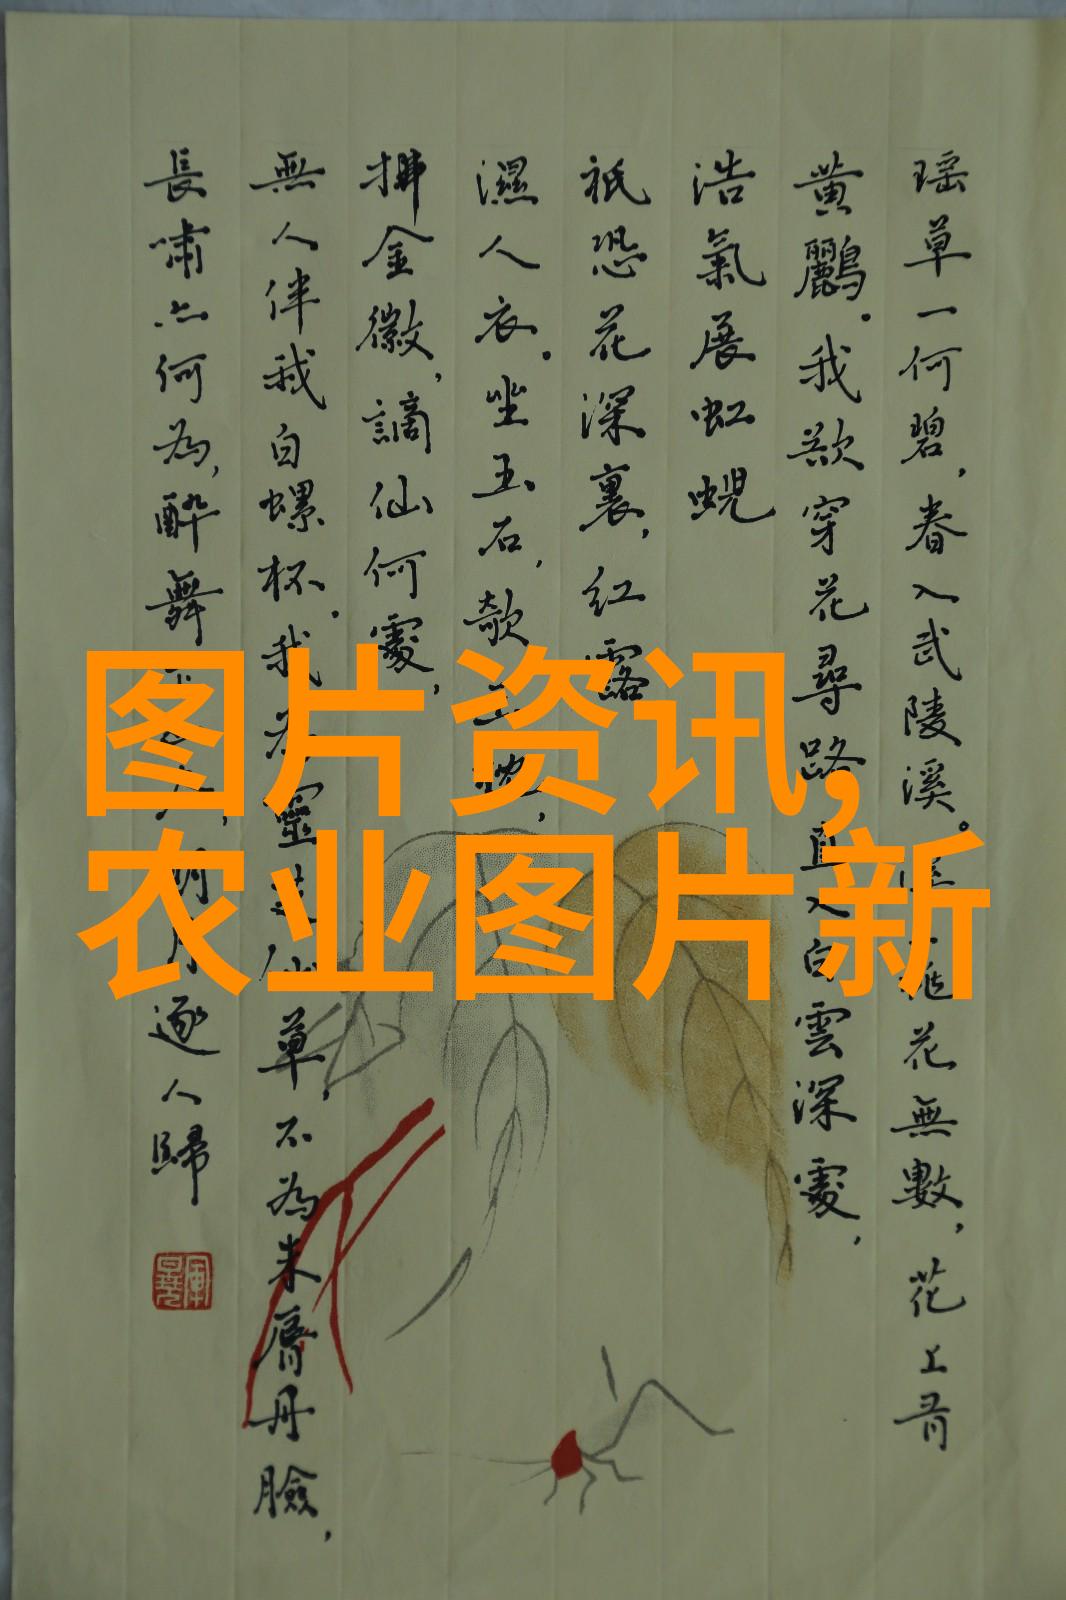 瑶草一何碧，春入武陵溪。花無數，花上有
黄鸝。我欲穿花尋路直入白雲深處，
浩氣展虹蜺
祇恐花深裏，紅露
濕人衣。坐玉石，欹玉枕，
拂金徽，謫仙何處，
無人伴我白螺杯。我為靈芝仙草，不為朱脣丹臉，
長嘯亦何為，醉舞明月逐人歸
图片资讯,
农业图片新